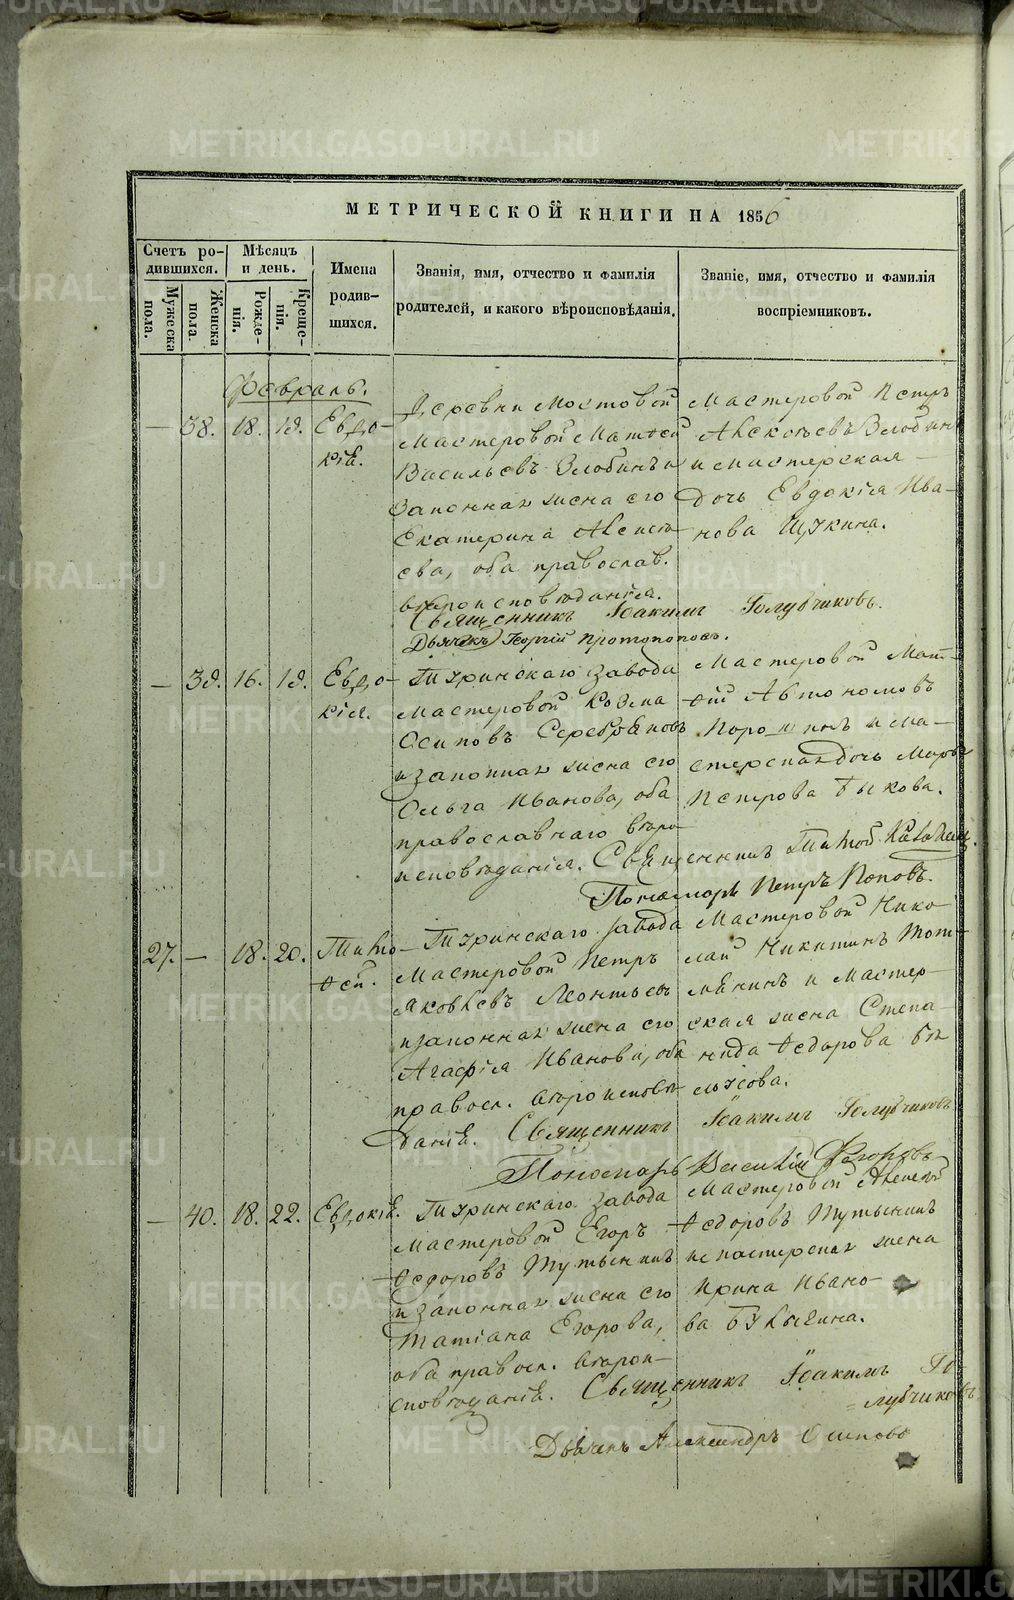 МЕТРИЧЕСКОЙ КНИГИ НА 1856
Счетъ родившихся.
Мѣсяцъ и день.
Мужеска пола.
Женска пола.
Рожденія.
Крещенія.
Имена родившихся.
Званія, имя, отчество и фамилія
родителей, и какого вѣроисповѣданія.
Званіе, имя, отчество и фамилія
воспріемниковъ.
Февраль.
— 38. 18. 19. Евдокія.
Деревни Мостовой
Мастеровой Матвей
Васильевъ Злобинъ и
Законная жена его
Екатерина Алексѣева, оба православ.
вѣроисповѣданія.
Мастеровой Петръ
Алексѣевъ Злобинъ
и мастерская
дочь Евдокія Иванова Щукина.
Священникъ Іоакимъ Голубчиковъ.
Дьячекъ Георгій Протопоповъ.
— 39. 16. 19. Евдокія.
Туринскаго завода
Мастеровой Козма
Осиповъ Серебряковъ
и законная жена его
Ольга Иванова, оба
православнаго вѣроисповѣданія.
Мастеровой Матѳій Автономовъ
и мастерская дочь
Петрова Быкова.
Священникъ
Пономарь Петръ Поповъ.
27. — 18. 20. Тимоѳей.
Туринскаго завода
Мастеровой Петръ
Яковлевъ Леонтьевъ
и законная жена его
Агафія Иванова, оба
правосл. вѣроисповѣданія.
Мастеровой Николай Никитинъ
и мастерская жена Степанида Ѳедорова
Священникъ Іоакимъ Голубчиковъ
Пономарь Василій
— 40. 18. 22. Евдокія.
Туринскаго завода
Мастеровой Егоръ
Ѳедоровъ Мутынинъ
и законная жена его
Татіана Егорова,
оба правосл. вѣроисповѣданія.
Мастеровой Алексѣй
Ѳедоровъ Мутынинъ
и мастерская жена
Ирина Иванова
Священникъ Іоакимъ Голубчиковъ
Дьячекъ Александръ Осиповъ
METRIKI.GASO-URAL.RU